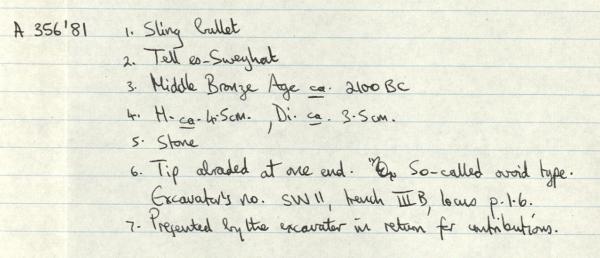 A 356'81 1. Sling bullet
2. Tell es-Sweyhat
3. Middle Bronze Age ca. 2100 BC
4. H. ca. 4.5cm., Di. ca. 3.5cm.
5. Stone
6. Tip abraded at one end. So-called ovoid type.
Excavator's no. SW11, trench IIIB, locus p.1.6.
7. Presented by the excavator in return for contributions.